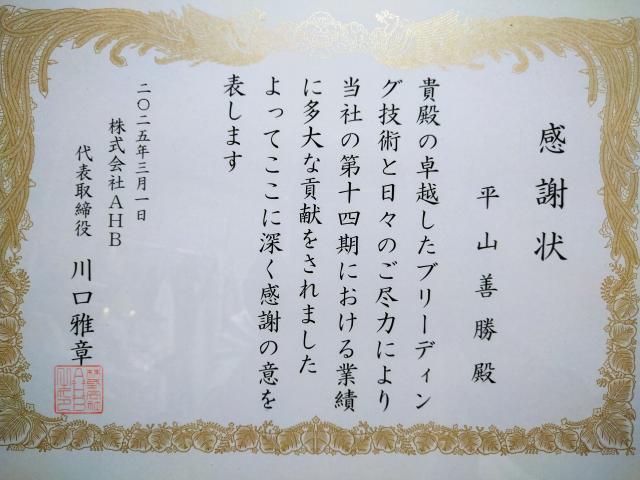 感謝状
平山善勝殿
貴殿の卓越したブリーディン
グ技術と日々のご尽力により
当社の第十四期における業績
に多大な貢献をされました
よってここに深く感謝の意を
表します
二〇二五年三月一日
株式会社AHB
代表取締役 川口雅章